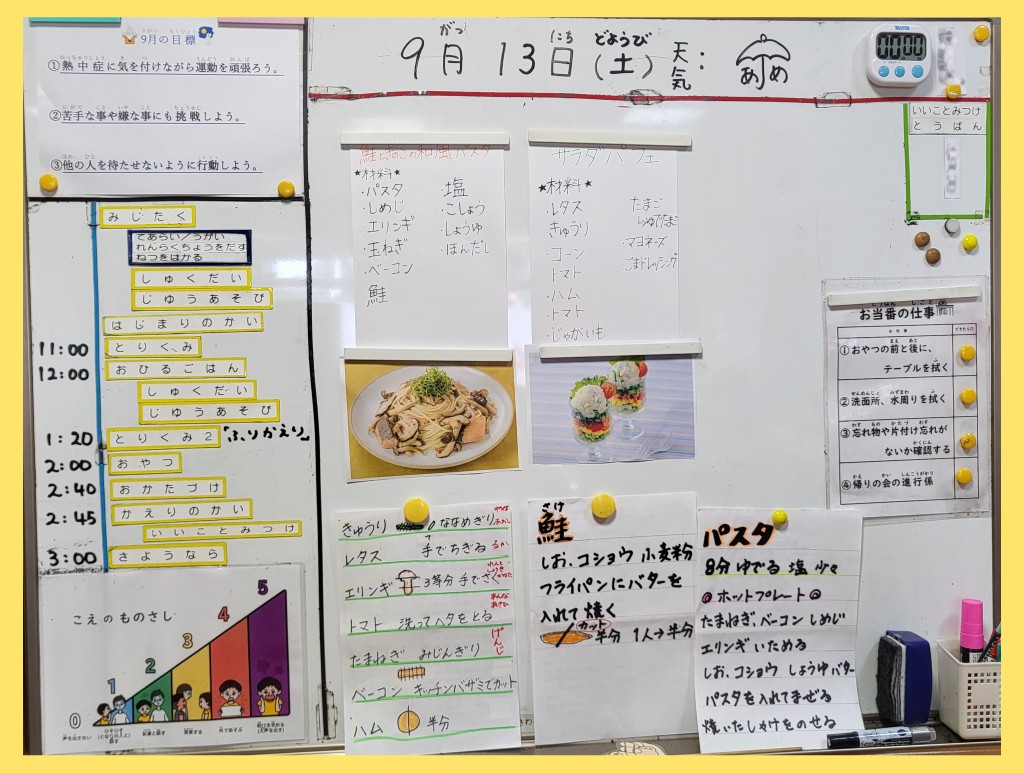 9月の目標
①熱中症に気を付けながら運動を頑張ろう。
②苦手な事や嫌な事にも挑戦しよう。
③他の人を待たせないように行動しよう。
がつ にち どようび
9月 13日(土) 天気: あめ
いいことみつけ
とうばん
みじたく
てあらい/うがい
れんらくちょうをだす
ねつをはかる
しゅくだい
じゆうあそび
はじまりのかい
11:00 とりくみ
12:00 おひるごはん
しゅくだい
じゆうあそび
1:20 とりくみ2「ふりかえり」
2:00 おやつ
2:40 おかたづけ
2:45 かえりのかい
いいことみつけ
3:00 さようなら
こえのものさし
5
4
3
2
1
0
声を出さない
鮭ときのこの和風パスタ
★材料★
・パスタ
・しめじ
・エリンギ
・玉ねぎ
・ベーコン
鮭
塩
・こしょう
・しょうゆ
・ほんだし
サラダパフェ
★材料★
・レタス
きゅうり
・コーン
・トマト
・ハム
・トマト
・じゃがいも
たまご
マヨネーズ
ごまドレッシング
お当番の仕事
①おやつの前と後に、
テーブルを拭く
②洗面所、水周りを拭く
③忘れ物や片付け忘れが
ないか確認する
④帰りの会の進行係
きゅうり ななめぎり
レタス 手でちぎる
エリンギ 3等分 手でさく
トマト 洗ってヘタをとる
たまねぎ みじんぎり
ベーコン キッチンバザミでカット
ハム 半分
さけ
鮭
しお、コショウ 小麦粉
フライパンにバターを
入れて焼く
カット
半分 1人→半分
パスタ
8分ゆでる 塩 少々
◎ホットプレート◎
たまねぎ、ベーコン しめじ
エリンギ いためる
しお、コショウ しょうゆバター
パスタを入れてまぜる
焼いたしゃけをのせる